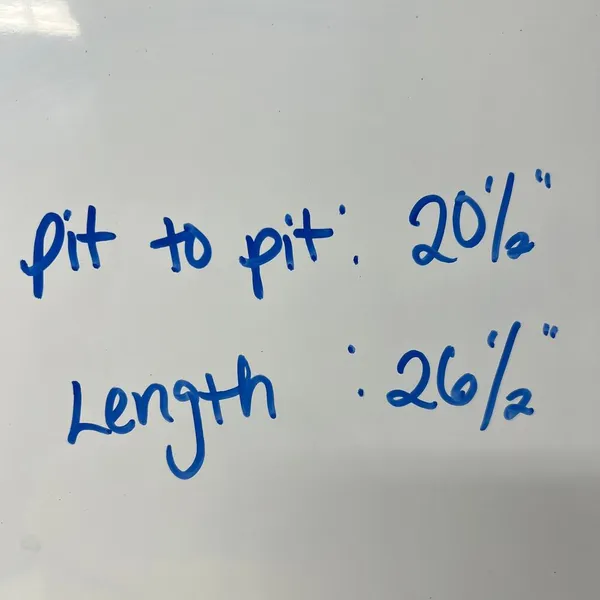 pit to pit: 20 1/2"
Length : 26 1/2"